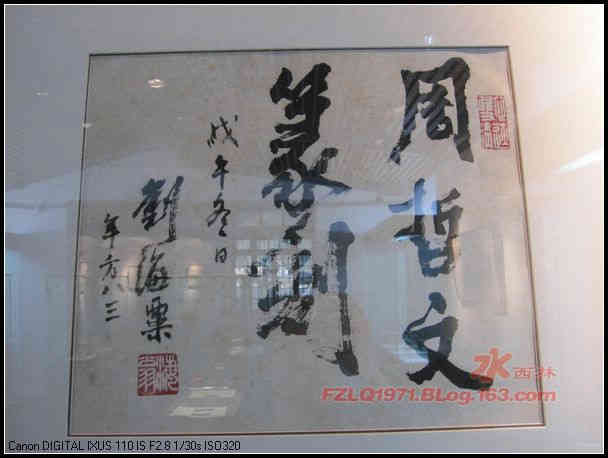 周哲文
篆刻
戊午冬日
劉海粟
年方八三
水西林
FZLQ1971.BLog.163.com
Canon DIGITAL IXUS 110 IS F2.8 1/30s ISO320